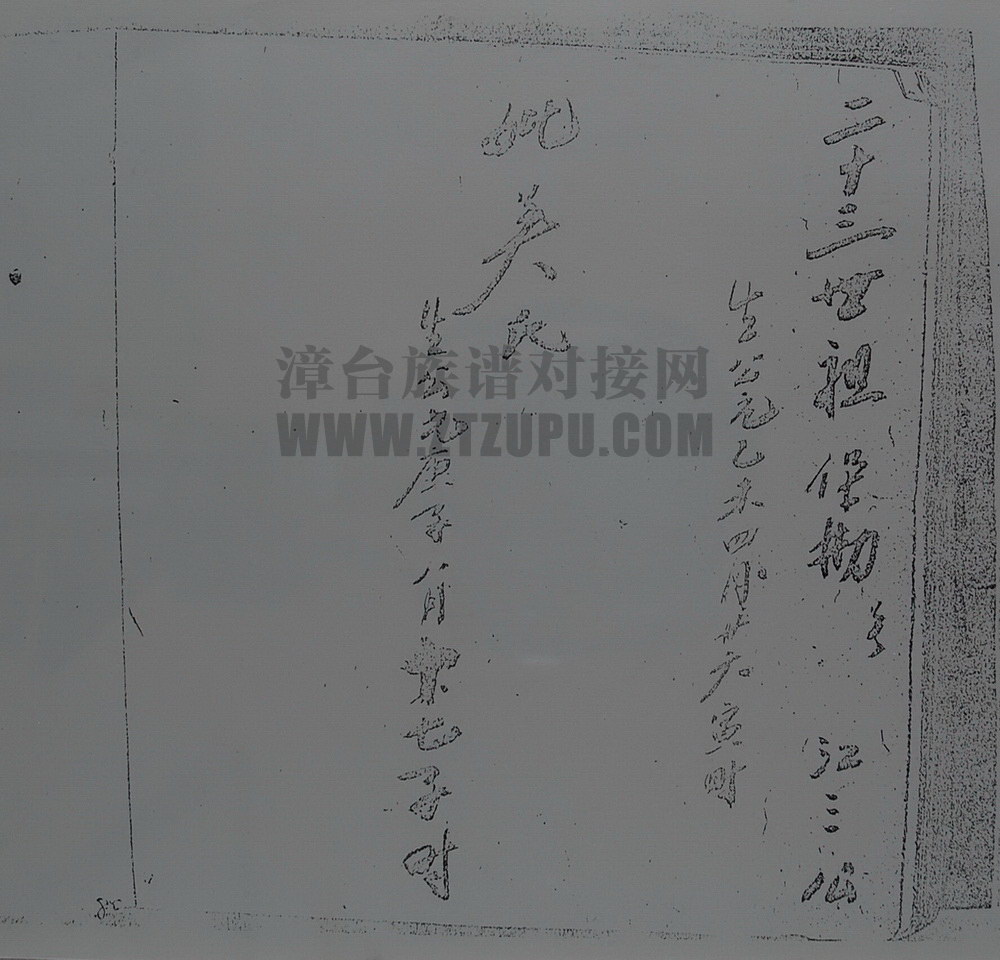 二十三世祖 保 江三公
生公元乙未四月廿六寅时
妣吴氏
生公元庚子八月初七子时
漳台族谱对接网
WWW.ZTZUPU.COM